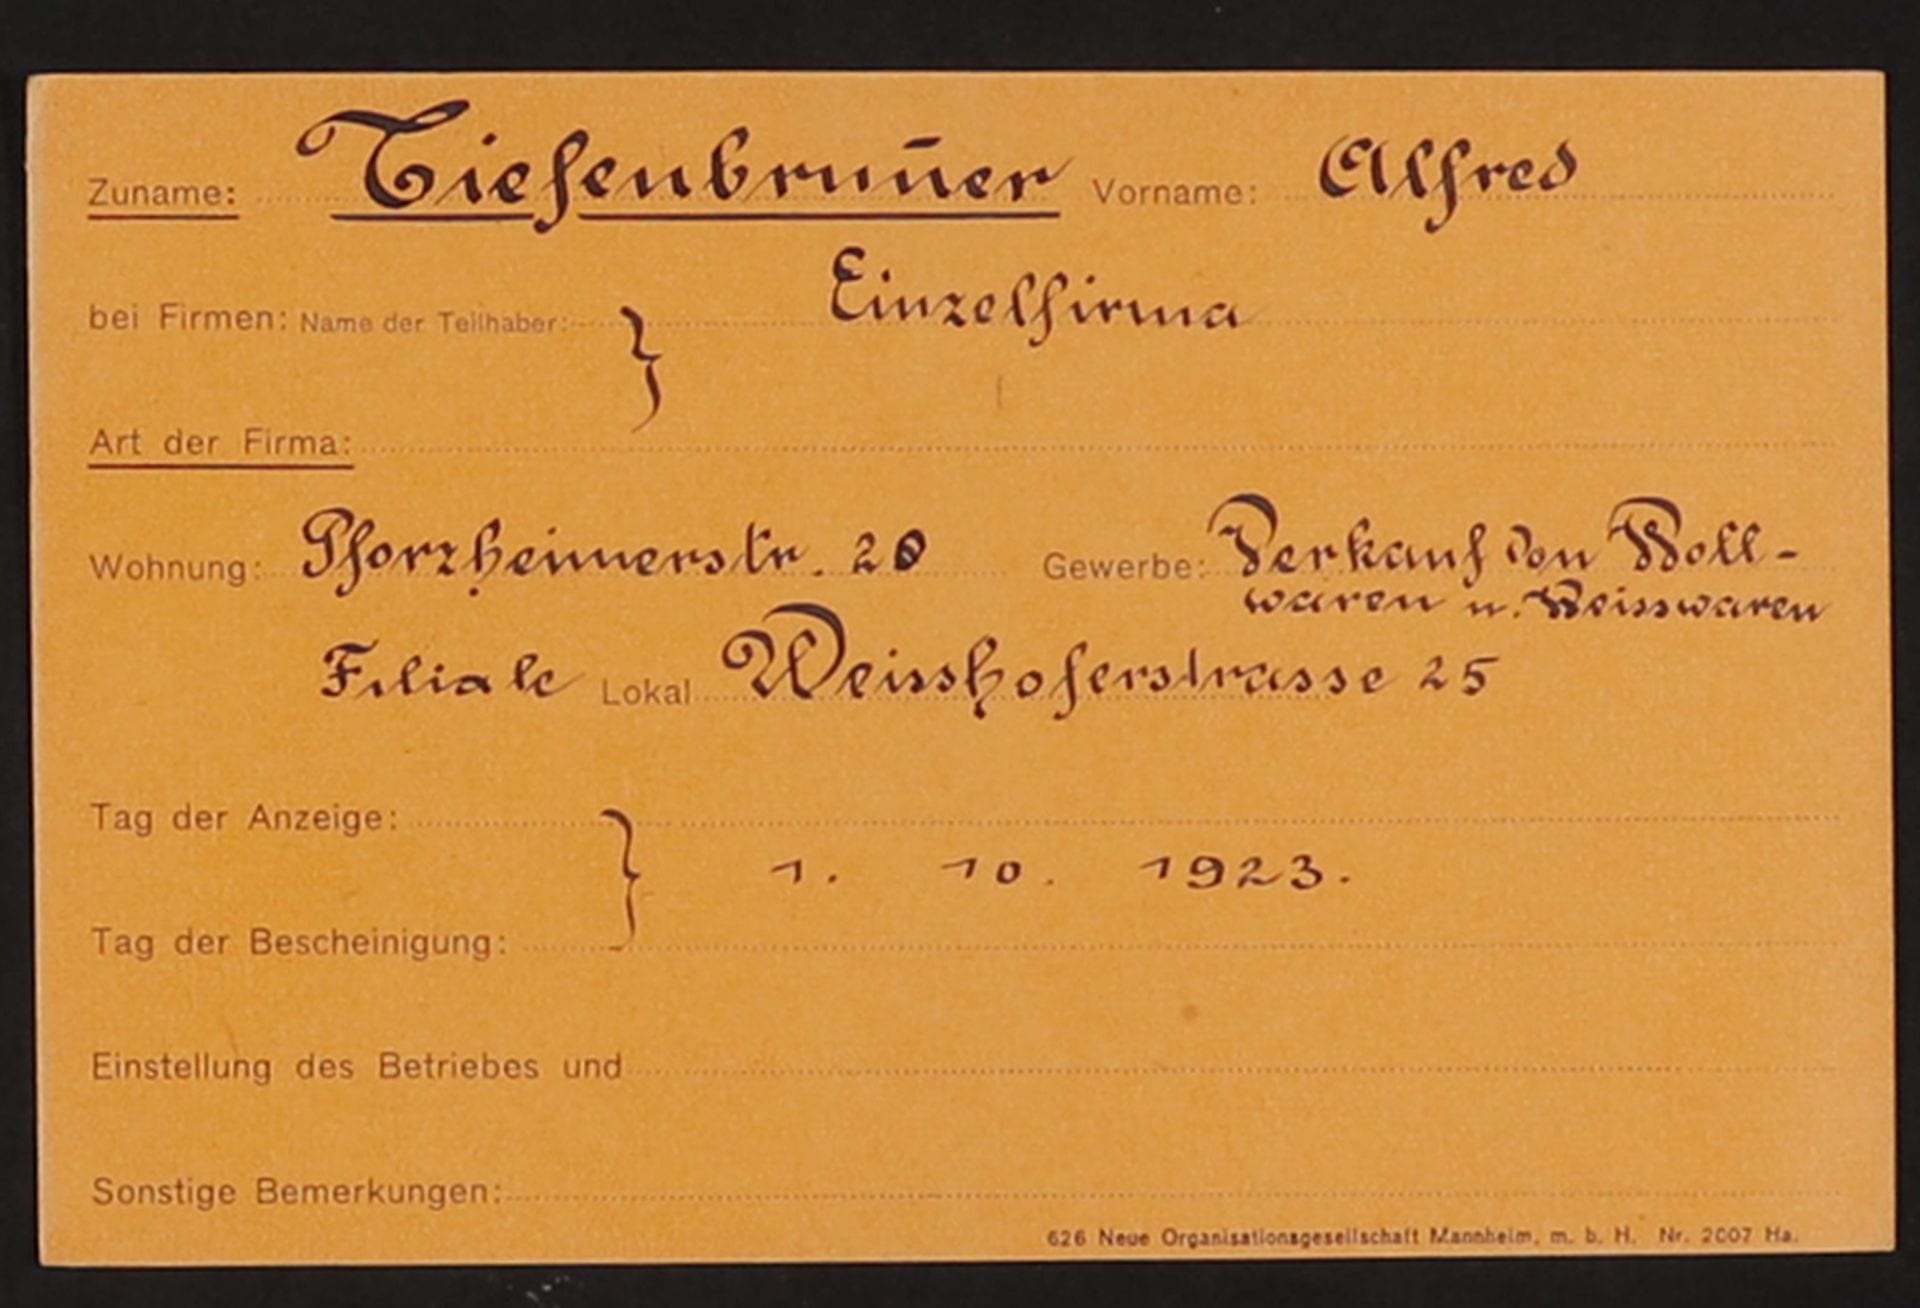 Zuname: Tiefenbrun̄er Vorname: Alfred
bei Firmen: Name der Teilhaber: } Einzelfirma
Art der Firma:
Wohnung: Pforzheimerstr. 20 Gewerbe: Verkauf von Woll-
waren u. Weisswaren
Filiale Lokal Weisshoferstrasse 25
Tag der Anzeige: }
1. 10. 1923.
Tag der Bescheinigung:
Einstellung des Betriebes und
Sonstige Bemerkungen:
626 Neue Organisationsgesellschaft Mannheim, m. b. H. Nr. 2007 Ha.